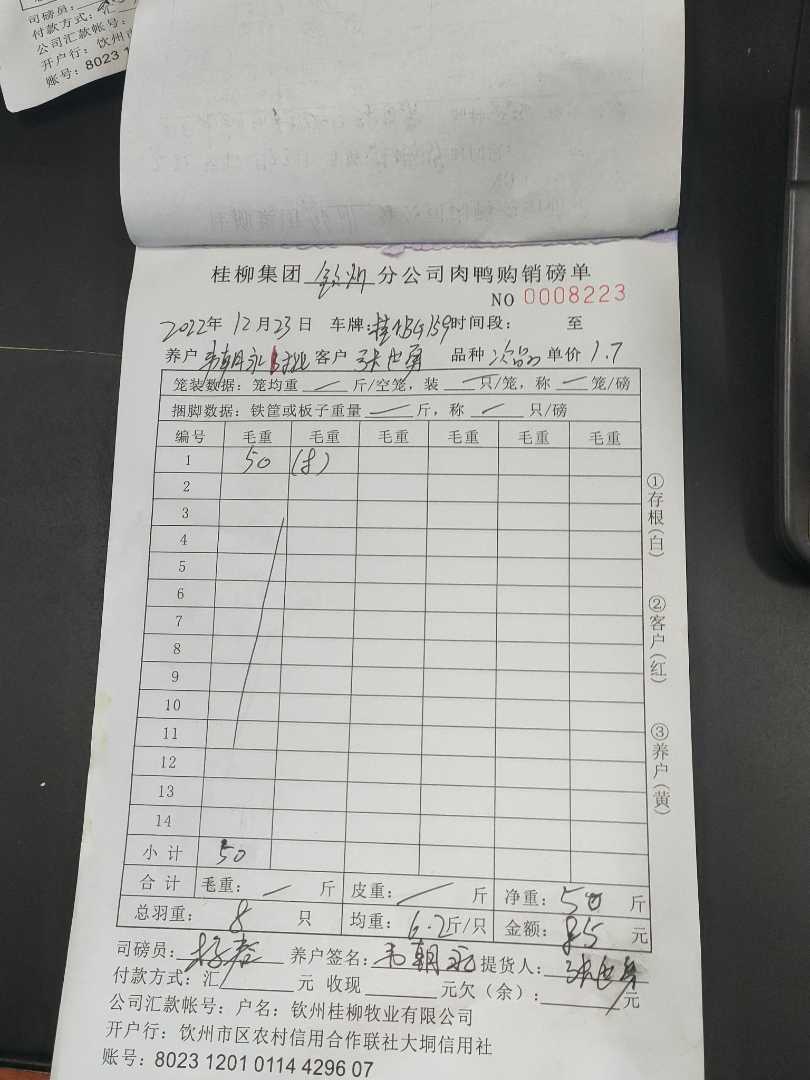 司磅员:
付款方式:汇
公司汇款帐号:
开户行: 钦州市
账号: 8023
桂柳集团 钦州 分公司肉鸭购销磅单
NO 0008223
2022年 12月23日 车牌: 时间段: 至
养户 客户 品种 次品 单价 1.7
笼装数据: 笼均重 — 斤/空笼, 装 — 只/笼, 称 — 笼/磅
捆脚数据: 铁筐或板子重量 — 斤, 称 — 只/磅
编号 毛重 毛重 毛重 毛重 毛重 毛重
1 50 (8)
2
3
4
5
6
7
8
9
10
11
12
13
14
小计 50
合计 毛重: — 斤 皮重: — 斤 净重: 50 斤
总羽重: 8 只 均重: 6.2斤/只 金额: 85 元
司磅员: 养户签名: 韦朝永 提货人:
付款方式:汇 元 收现 元欠(余): 元
公司汇款帐号: 户名: 钦州桂柳牧业有限公司
开户行: 钦州市区农村信用合作联社大垌信用社
账号: 8023 1201 0114 4296 07
①存根(白)
②客户(红)
③养户(黄)